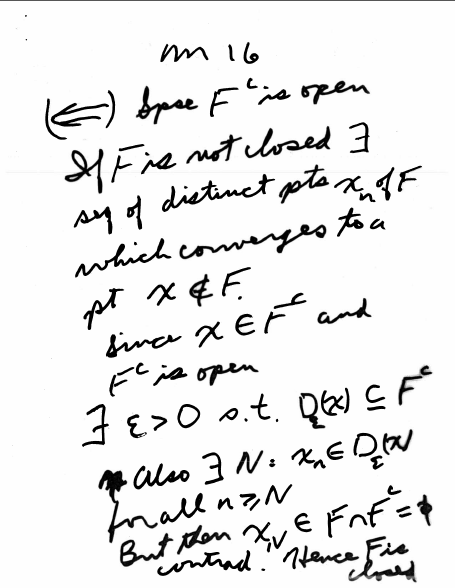 m 16
(⇐) Spse F^c is open
If F is not closed ∃
seq of distinct pts x_n of F
which converges to a
pt x ∉ F.
Since x ∈ F^c and
F^c is open
∃ ε > 0 s.t. D_ε(x) ⊆ F^c
Also ∃ N: x_n ∈ D_ε(x)
for all n ≥ N
But then x_N ∈ F∩F^c = ϕ
contrad. Hence F is
closed